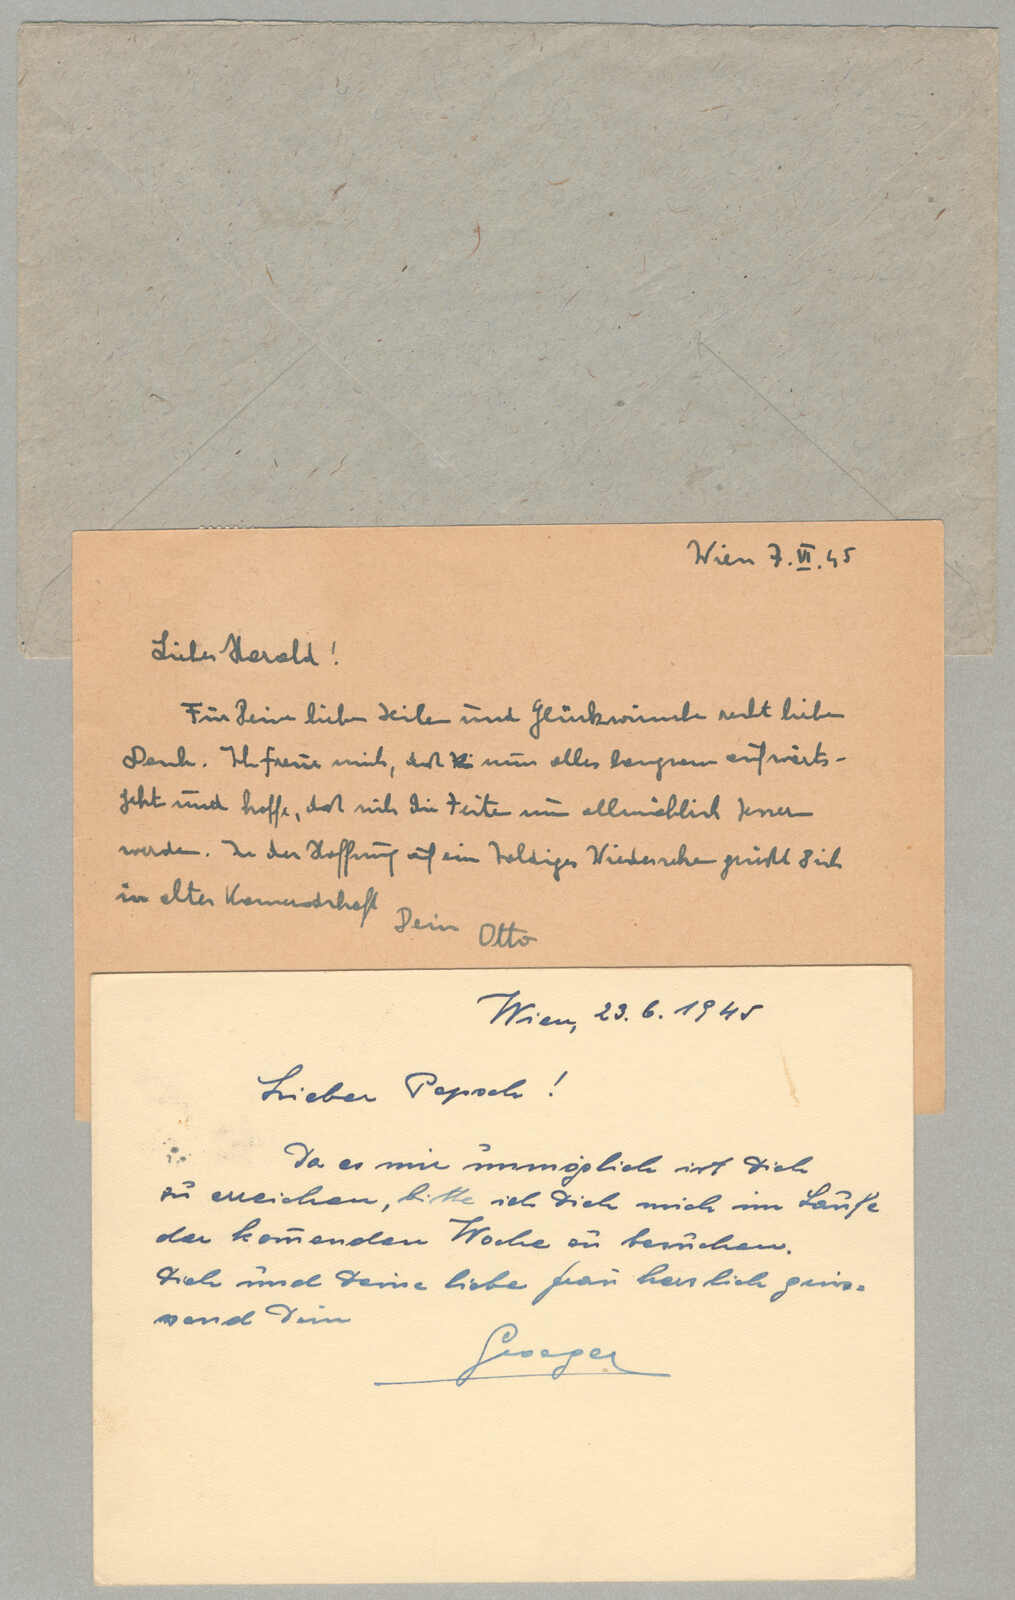 Wien 7.VI.45
Lieber Harald!
Für Deine lieben Zeilen und Glückwünsche recht lieben
Dank. Ich freue mich, daß nun alles langsam aufwärts-
geht und hoffe, daß sich die Zeiten nun allmählich bessern
werden. In der Hoffnung auf ein baldiges Wiedersehen grüßt Dich
in alter Kameradschaft
Dein Otto
Wien, 23.6.1945
Lieber Pepsch!
Da es mir unmöglich ist Dich
zu erreichen, bitte ich Dich mich im Laufe
der kom̅enden Woche zu besuchen.
Dich und Deine liebe Frau herzlich grüs-
send Dein